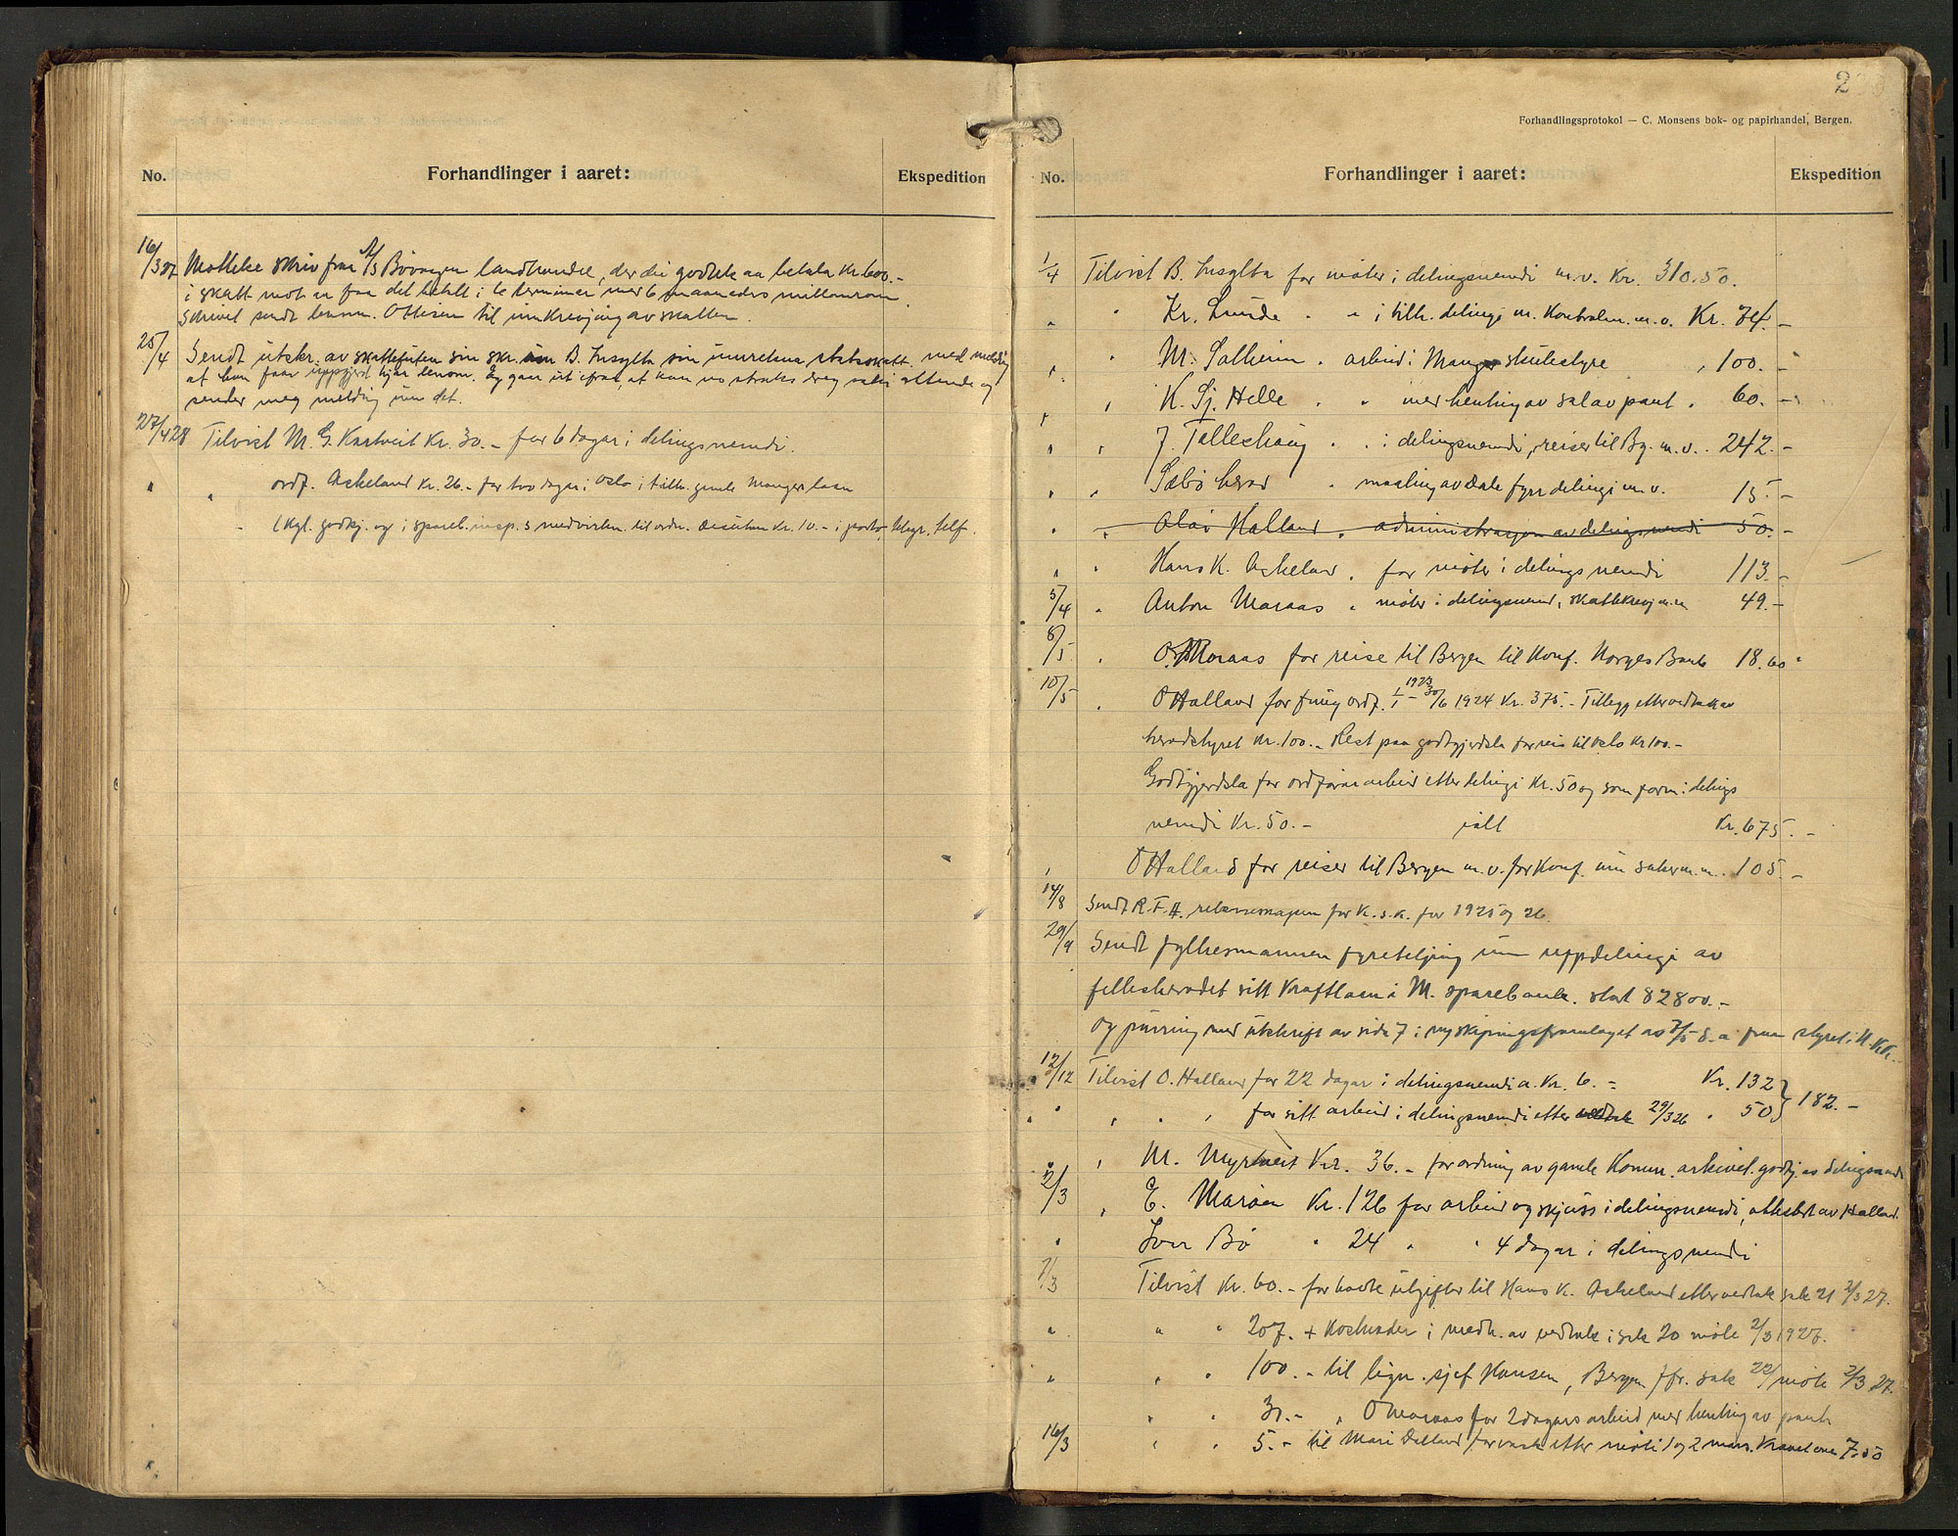 No. Forhandlinger i aaret: Ekspedition
16/3 27 Motteke skriv fraa A/S Bövaagen landhandel, der dei godtek aa betala kr. 600.-
i skatt mot aa faa det betalt i to terminar med 6 maanaders millomrom.
Skrivet sendt lensm. Ottesen til innkrevjing av skatten.
25/4 Sendt utskr. av skattefuten sin skr. um B. Insylta sin statsskatt med melding
at han faar uppgjerd hjaa lensm. Eg gaar ut ifraa at han no straks
sender meg melding um det.
27/4 28 Tilvist M. G. Kartveit Kr. 30.- for 6 dagar i delingsnemdi.
" " ordf. Askeland Kr. 26.- for tvo dagar i Oslo i tilh. gamle Manger laan
" (kgl. godkj. og i spareb. insp. s medvirkn. til ordn. desutan Kr. 10.- i porto, telegr. telf.
2
Forhandlingsprotokol — C. Monsens bok- og papirhandel, Bergen.
No. Forhandlinger i aaret: Ekspedition
1/4 Tilvist B. Insylta for möter i delingsnemdi m.v. Kr. 310.50.
" " Kr. Lunde " " i tilh. delingi m. Kontrolm. m.v. Kr. 74.-
" " M. Solheim " arbeid i Manger skulestyre " 100.-
" " K. Sj. Helle " " med henting av sal av pant " 60.-
" " J. Tolleshaug " " i delingsnemdi, reiser til Bg. m.v. 242.-
" " Sæbö herad " maaling av Dale fyrr delingi m.v. 15.-
" " Olav Halland " administrasjon av delingsnemdi 50.-
" " Hans K. Askeland " for möter i delingsnemdi 113.-
5/4 " Anton Maraas " möter i delingsnemd, skattekrevj m.m 49.-
6/5 " O. Moraas for reise til Bergen til Konf. Norges Bank 18.60
10/5 " O Halland for fung ordf. 1/1 1923 - 30/6 1924 Kr. 375.- Tillegg etter vedtak av
heradstyret Kr. 100.- Rest paa godtgjerdsla for reis til Oslo Kr 100.-
Godtgjerdsla for ordförararbeid etter delingi Kr. 50 og som form. i delings
nemdi Kr. 50.- ialt Kr. 675.-
" O Halland for reiser til Bergen m.v. for Konf. um saker m.m. 105.-
14/8 Sendt R.F.H. rekneskapen for K.s.k. for 1925 og 26.
29/9 Sendt fylkesmannen fyreteljing um uppdelingi av
fellesheradet sitt Kraftlaan i M. sparebank. stort 82800.-
og purring med utskrift av side 7 i nyskipingsframlaget av 7/5 s.a. fraa styret i N.K.K.
12/12 Tilvist O. Halland for 22 dagar i delingsnemdi a. Kr. 6.- = Kr. 132
" " " " for sitt arbeid i delingsnemdi etter vedtak 29/3 26 " 50 } 182.-
" " M. Myrtveit Kr. 36.- for ordning av gamle Komm. arkivet. godkj. av delingsnemdi
2/3 " E. Maröen Kr. 126 for arbeid og skjuss i delingsnemdi, attestert av Halland.
" Iver Bö " 24 " " 4 dagar i delingsnemdi
7/3 Tilvist Kr. 60.- for havde utgifter til Hans K. Askeland etter vedtak sak 21 2/3 27.
" " " 207. + Kostnader i medh. av vedtak i sak 20 möte 2/3 1927.
" " " 100.- til lign. sjef Hansen, Bergen jfr. sak 22/ möte 2/3 27.
" " 30.- " O Moraas for 2 dagars arbeid med henting av pant
16/3 " " 5.- til Mari Dalland for vask etter möti 1 og 2 mars. Kravet one 7.50